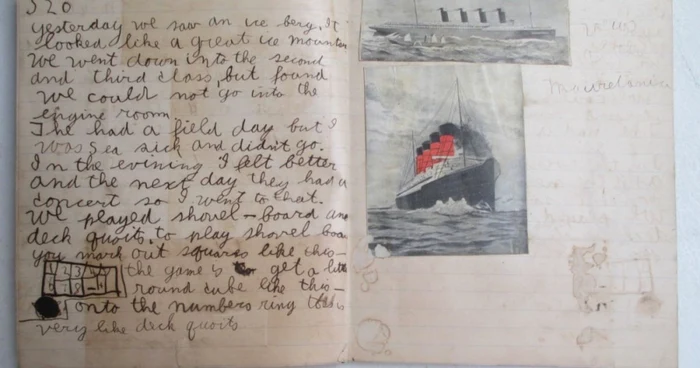 320
yesterday we saw an ice berg. It
looked like a great ice mountain
We went down into the second
and third class, but found
we could not go into the
engine room
The had a field day but I
was sea sick and didn't go.
In the evining I felt better
and the next day they had a
concert so I went to that.
We played shovel-board and
deck quoits. to play shovel boa
you mark out squares like this—
1 2 3
the game is to get a litt
round cube like this—
onto the numbers ring to
very like deck quoits
Mauretania